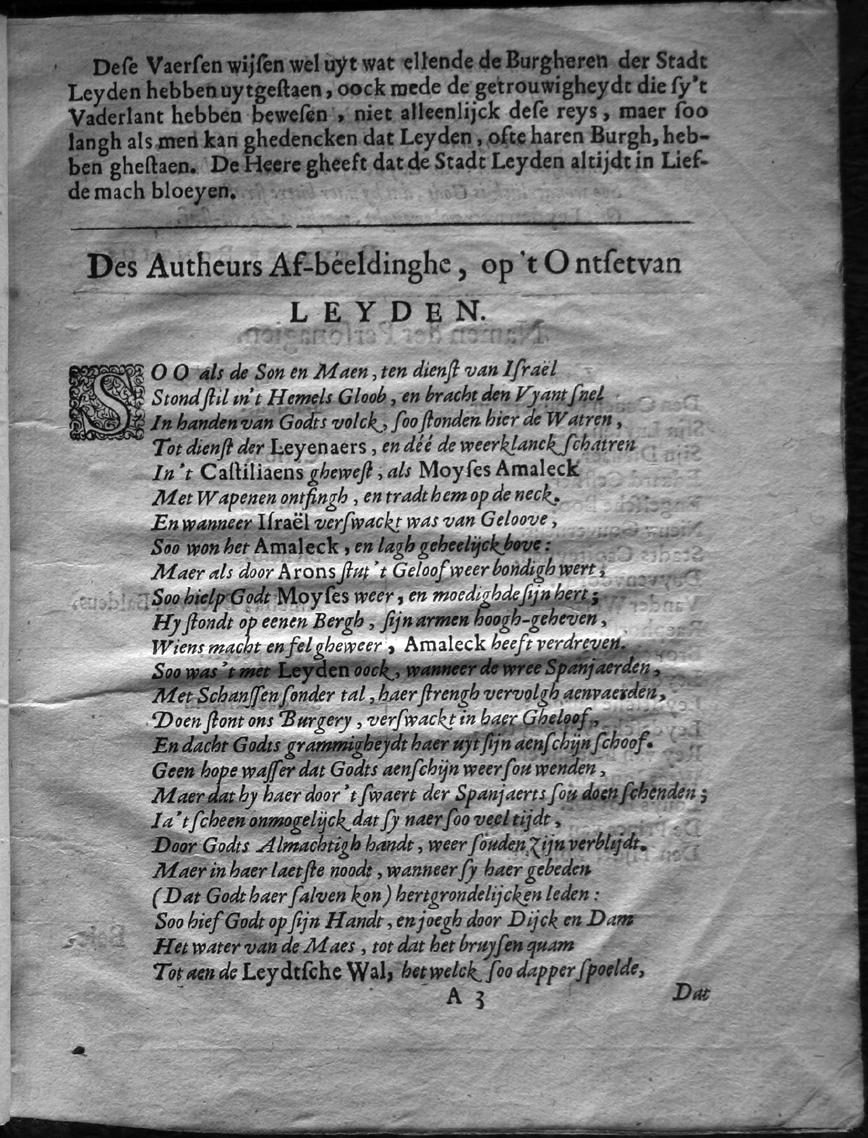 Deſe Vaerſen wijſen wel uyt wat ellende de Burgheren der Stadt
Leyden hebben uytgeſtaen, oock mede de getrouwigheydt die ſy't
Vaderlant hebben beweſen, niet alleenlijck deſe reys, maer ſoo
langh als men kan ghedencken dat Leyden, ofte haren Burgh, heb-
ben gheſtaen. De Heere gheeft dat de Stadt Leyden altijdt in Lief-
de mach bloeyen.
Des Autheurs Af-beeldinghe, op 't Ontſet van
LEYDEN.
SOO als de Son en Maen, ten dienſt van Iſraël
Stond ſtil in't Hemels Gloob, en bracht den Vyant ſnel
In handen van Godts volck, ſoo ſtonden hier de Watren,
Tot dienſt der Leyenaers, en déé de weerklanck ſchatren
In 't Caſtiliaens gheweſt, als Moyſes Amaleck
Met Wapenen ontfingh, en tradt hem op de neck.
En wanneer Iſraël verſwackt was van Geloove,
Soo won het Amaleck, en lagh geheelijck bove:
Maer als door Arons ſtut 't Geloof weer bondigh wert,
Soo hielp Godt Moyſes weer, en moedighde ſijn hert;
Hy ſtondt op eenen Bergh, ſijn armen hoogh-geheven,
Wiens macht en fel gheweer, Amaleck heeft verdreven.
Soo was 't met Leyden oock, wanneer de wree Spanjaerden,
Met Schanſſen ſonder tal, haer ſtrengh vervolgh aenvaerden,
Doen ſtont ons Burgery, verſwackt in haer Gheloof,
En dacht Godts grammigheydt haer uyt ſijn aenſchijn ſchoof.
Geen hope waſſer dat Godts aenſchijn weer ſou wenden,
Maer dat hy haer door 't ſwaert der Spanjaerts ſou doen ſchenden;
Ia 't ſcheen onmogelijck dat ſy naer ſoo veel tijdt,
Door Godts Almachtigh handt, weer ſouden zijn verblijdt.
Maer in haer laetſte noodt, wanneer ſy haer gebeden
(Dat Godt haer ſalven kon) hertgrondelijcken leden:
Soo hief Godt op ſijn Handt, en joegh door Dijck en Dam
Het water van de Maes, tot dat het bruyſen quam
Tot aen de Leydtſche Wal, het welck ſoo dapper ſpoelde,
A 3 Dat